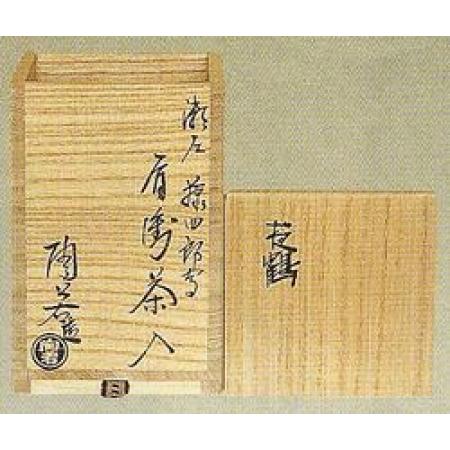 瀬戸 藤四郎写
肩衝茶入
陶
造
鶴